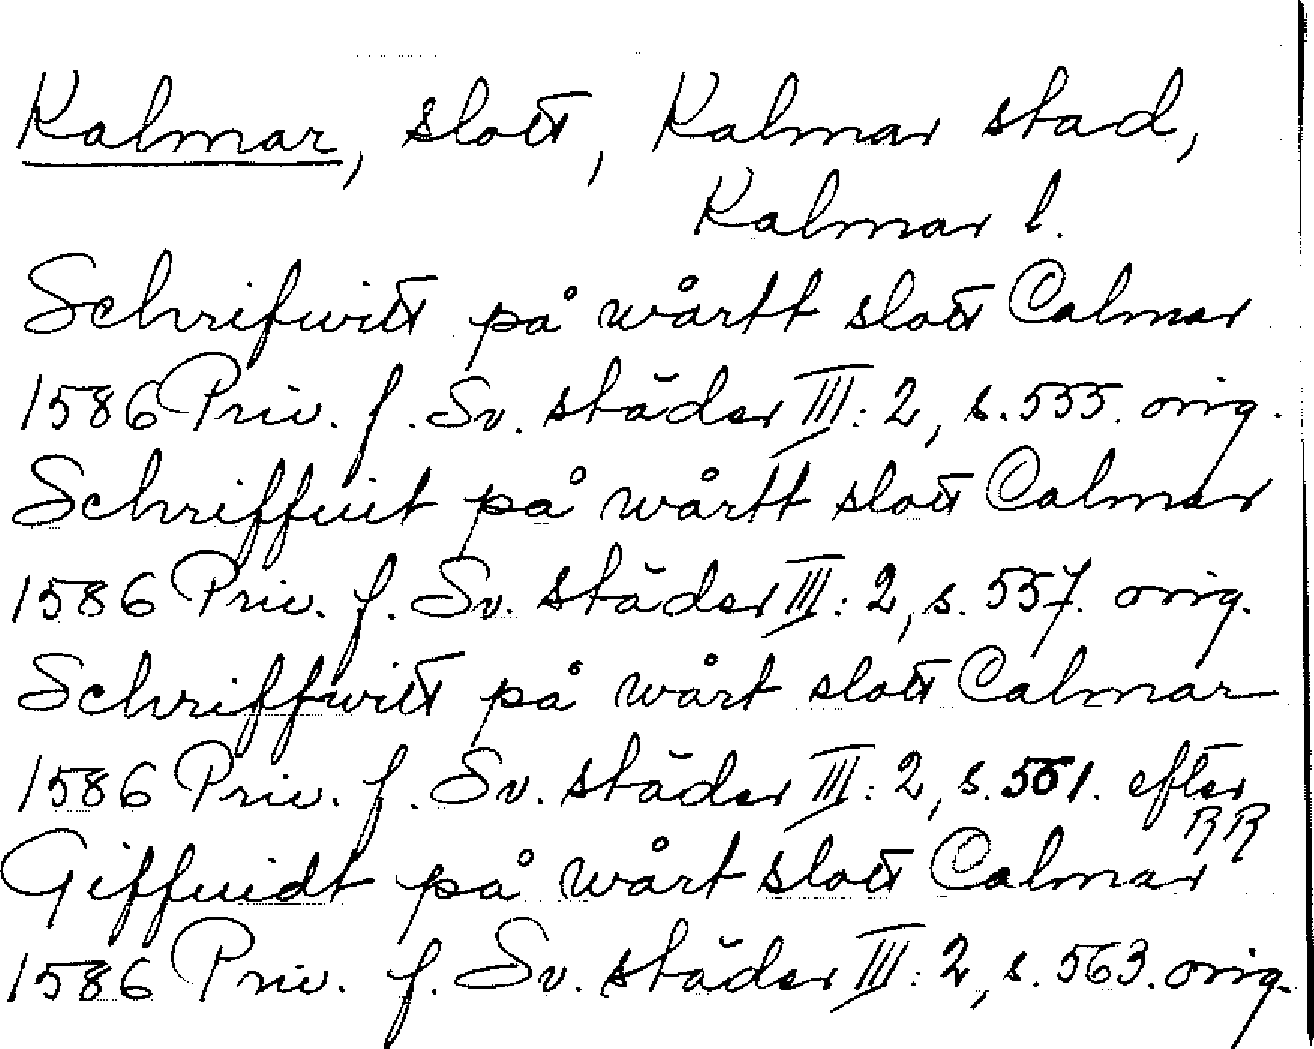 Kalmar, slott, Kalmar stad,
Kalmar l.
Schrifwitt på wårtt slott Calmar
1586 Priv. f. Sv. städer III: 2, s. 555. orig.
Schriffuit på wårtt slott Calmar
1586 Priv. f. Sv. städer III: 2, s. 557. orig.
Schriffwitt på wårt slott Calmar
1586 Priv. f. Sv. städer III: 2, s. 561. efter
RR
Giffuidt på wårt slott Calmar
1586 Priv. f. Sv. städer III: 2, s. 563. orig.